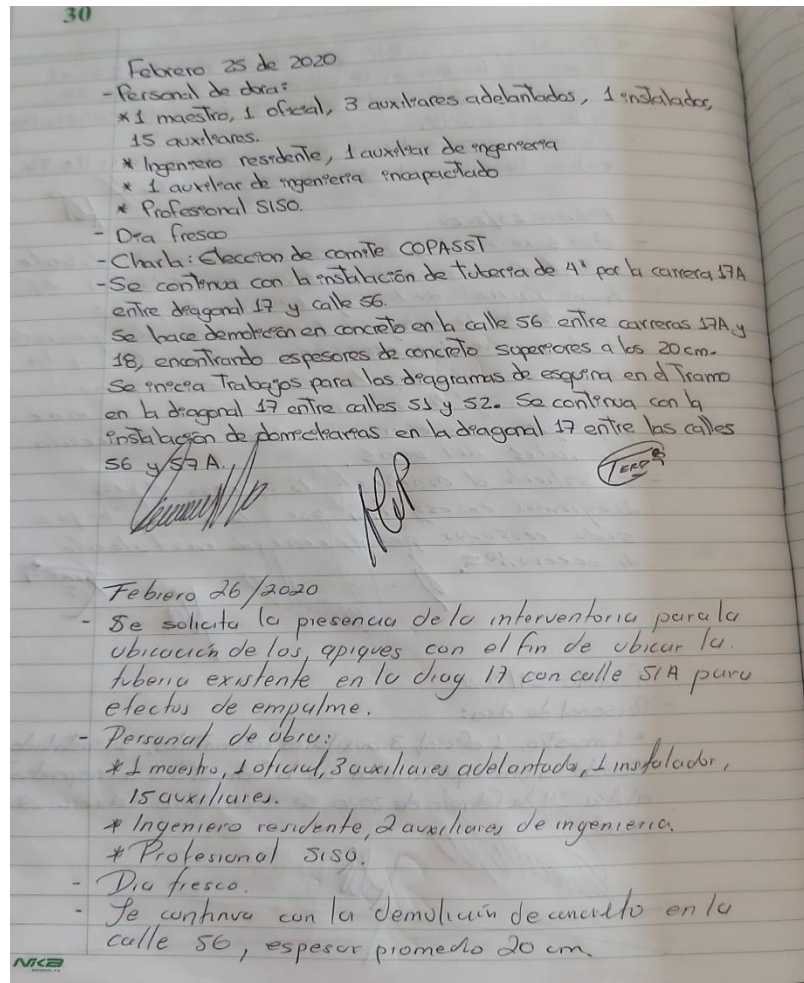 30
Febrero 25 de 2020
- Personal de obra:
* 1 maestro, 1 oficial, 3 auxiliares adelantados, 1 instalador,
15 auxiliares.
* Ingeniero residente, 1 auxiliar de ingenieria
* 1 auxiliar de ingenieria incapacitado
* Profesional SISO.
- Dia fresco
- Charla: Eleccion de comite COPASST
- Se continua con la instalación de tuberia de 4" por la carrera 17A
entre diagonal 17 y calle 56.
Se hace demolición en concreto en la calle 56 entre carreras 17A y
18, encontrando espesores de concreto superiores a los 20 cm.
Se inicia Trabajos para los diagramas de esquina en el Tramo
en la diagonal 17 entre calles 51 y 52. Se continua con la
instalación de domiciliarias en la diagonal 17 entre las calles
56 y 57 A.
Febrero 26/2020
- Se solicita la presencia de la interventoria para la
ubicación de los apiques con el fin de ubicar la
tuberia existente en la diag 17 con calle 51A para
efectos de empalme.
- Personal de obra:
* 1 maestro, 1 oficial, 3 auxiliares adelantado, 1 instalador,
15 auxiliares.
* Ingeniero residente, 2 auxiliares de ingenieria.
* Profesional SISO.
- Dia fresco.
- Se continua con la demolición de concreto en la
calle 56, espesor promedio 20 cm.